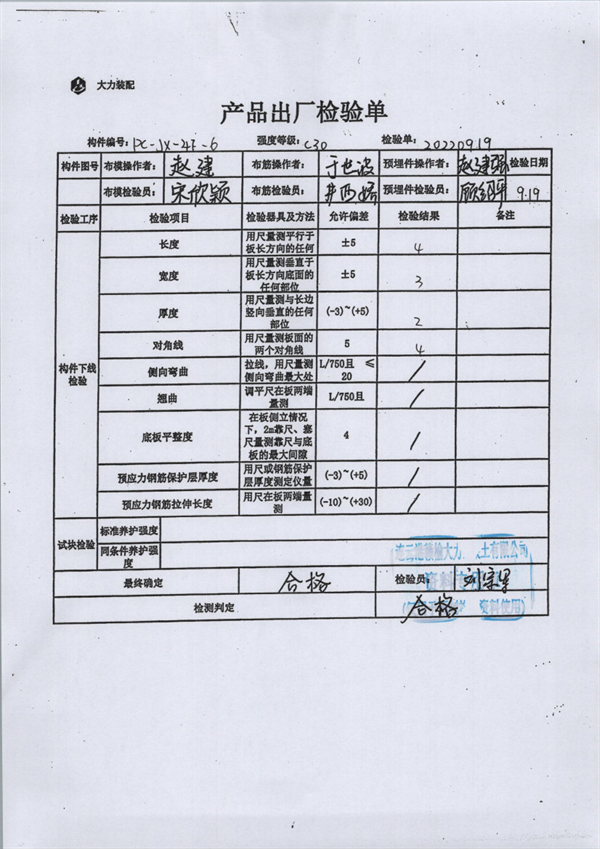 大力装配
产品出厂检验单
构件编号: PC-JX-4F-6 强度等级: C30 检验单: 20220919
构件图号 布模操作者: 赵建 布筋操作者: 于世波 预埋件操作者: 赵建强 检验日期
布模检验员: 宋欣颖 布筋检验员: 预埋件检验员: 9.19
检验工序 检验项目 检验器具及方法 允许偏差 检验结果 备注
构件下线检验
长度 用尺量测平行于板长方向的任何 ±5 4
宽度 用尺量测垂直于板长方向底面的任何部位 ±5 3
厚度 用尺量测与长边竖向垂直的任何部位 (-3)~(+5) 2
对角线 用尺量测板面的两个对角线 5 4
侧向弯曲 拉线，用尺量测侧向弯曲最大处 L/750且 ≤20 /
翘曲 调平尺在板两端量测 L/750且 /
底板平整度 在板侧立情况下，2m靠尺、塞尺量测靠尺与底板的最大间隙 4 /
预应力钢筋保护层厚度 用尺或钢筋保护层厚度测定仪量 (-3)~(+5) /
预应力钢筋拉伸长度 用尺在板两端量测 (-10)~(+30) /
试块检验 标准养护强度
同条件养护强度
最终确定 合格 检验员:
检测判定 合格
有限公司
资料专
资料使用)